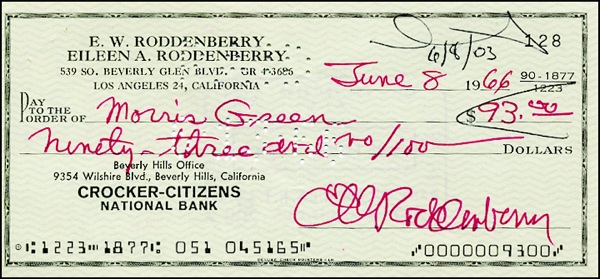 E. W. RODDENBERRY 128
EILEEN A. RODDENBERRY 6/8/03
539 SO. BEVERLY GLEN BLVD. CR 4-3686
LOS ANGELES 24, CALIFORNIA
June 8 1966 90-1877
1223
PAY TO THE ORDER OF Morris Green $93.00
Ninety-three and no/100 DOLLARS
Beverly Hills Office
9354 Wilshire Blvd., Beverly Hills, California
CROCKER-CITIZENS
NATIONAL BANK
EW Roddenberry
1223 1877 051 045165 0000009300